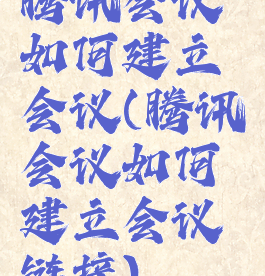 腾讯会议
如何建立
会议(腾讯
会议如何
建立会议
链接)